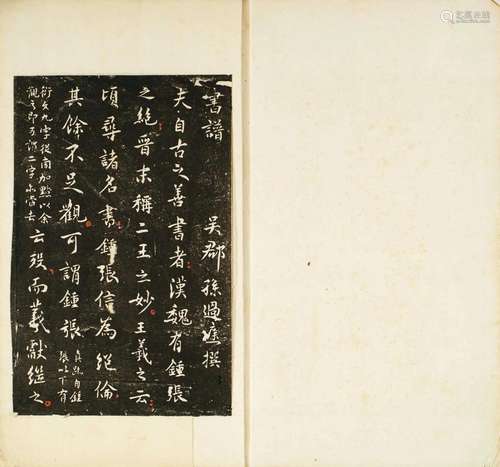 書譜
吳郡 孫過庭撰
夫自古之善書者漢魏有鍾張
之絕晉末稱二王之妙王羲之云
頃尋諸名書鍾張信為絕倫
其餘不足觀可謂鍾張
衍文九字從南加點以余
觀之即可謂二字亦當去
云歿而羲獻繼之